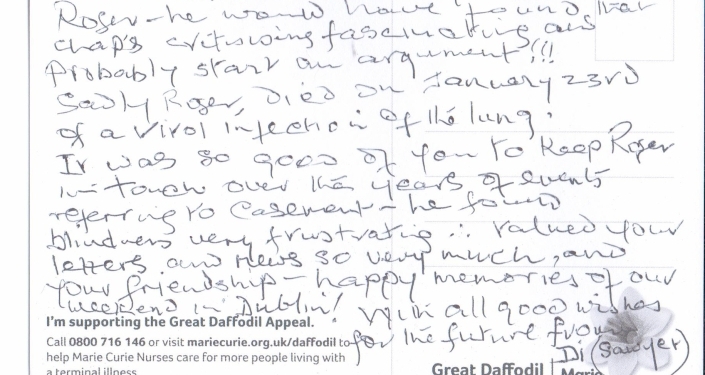 Roger - he would have found that
chap's critising fascinating and
Probably start an argument!!!
Sadly Roger died on January 23rd
of a Viral Infection of the lung.
It was so good of you to keep Roger
in touch over the years of events
referring to Casement - he found
blindness very frustrating ∴ valued your
letters and news so very much, and
your friendship - happy memories of our
weekend in Dublin! With all good wishes
for the future from
Di (Sawyer)
I'm supporting the Great Daffodil Appeal.
Call 0800 716 146 or visit mariecurie.org.uk/daffodil to
help Marie Curie Nurses care for more people living with
a terminal illness.
Great Daffodil
Marie